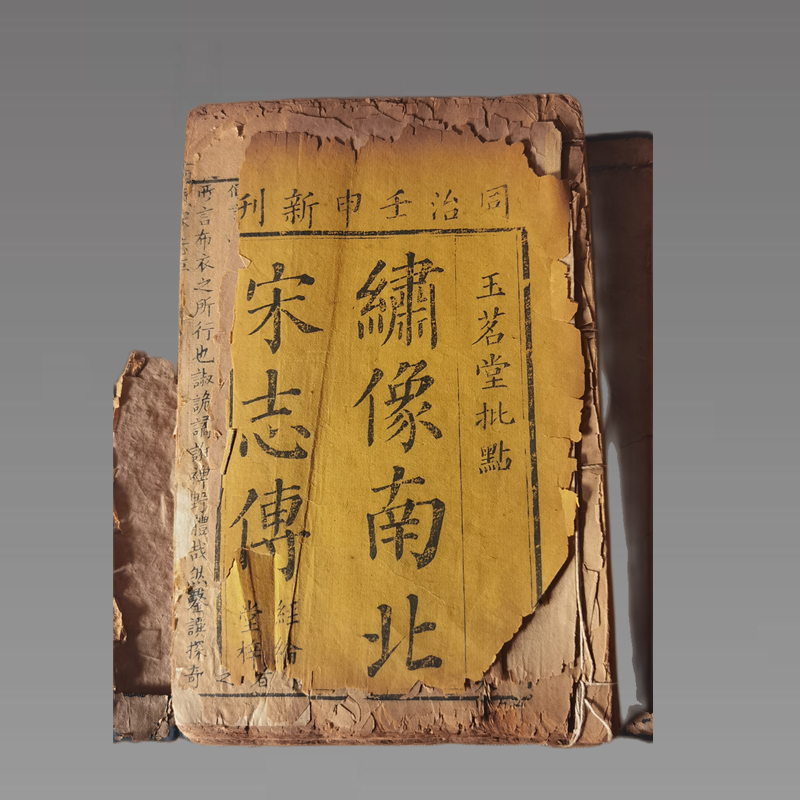 同治壬申新刊
玉茗堂批點
繡像南北
宋志傳
經綸
堂梓
所言布衣之所行也
然
探奇